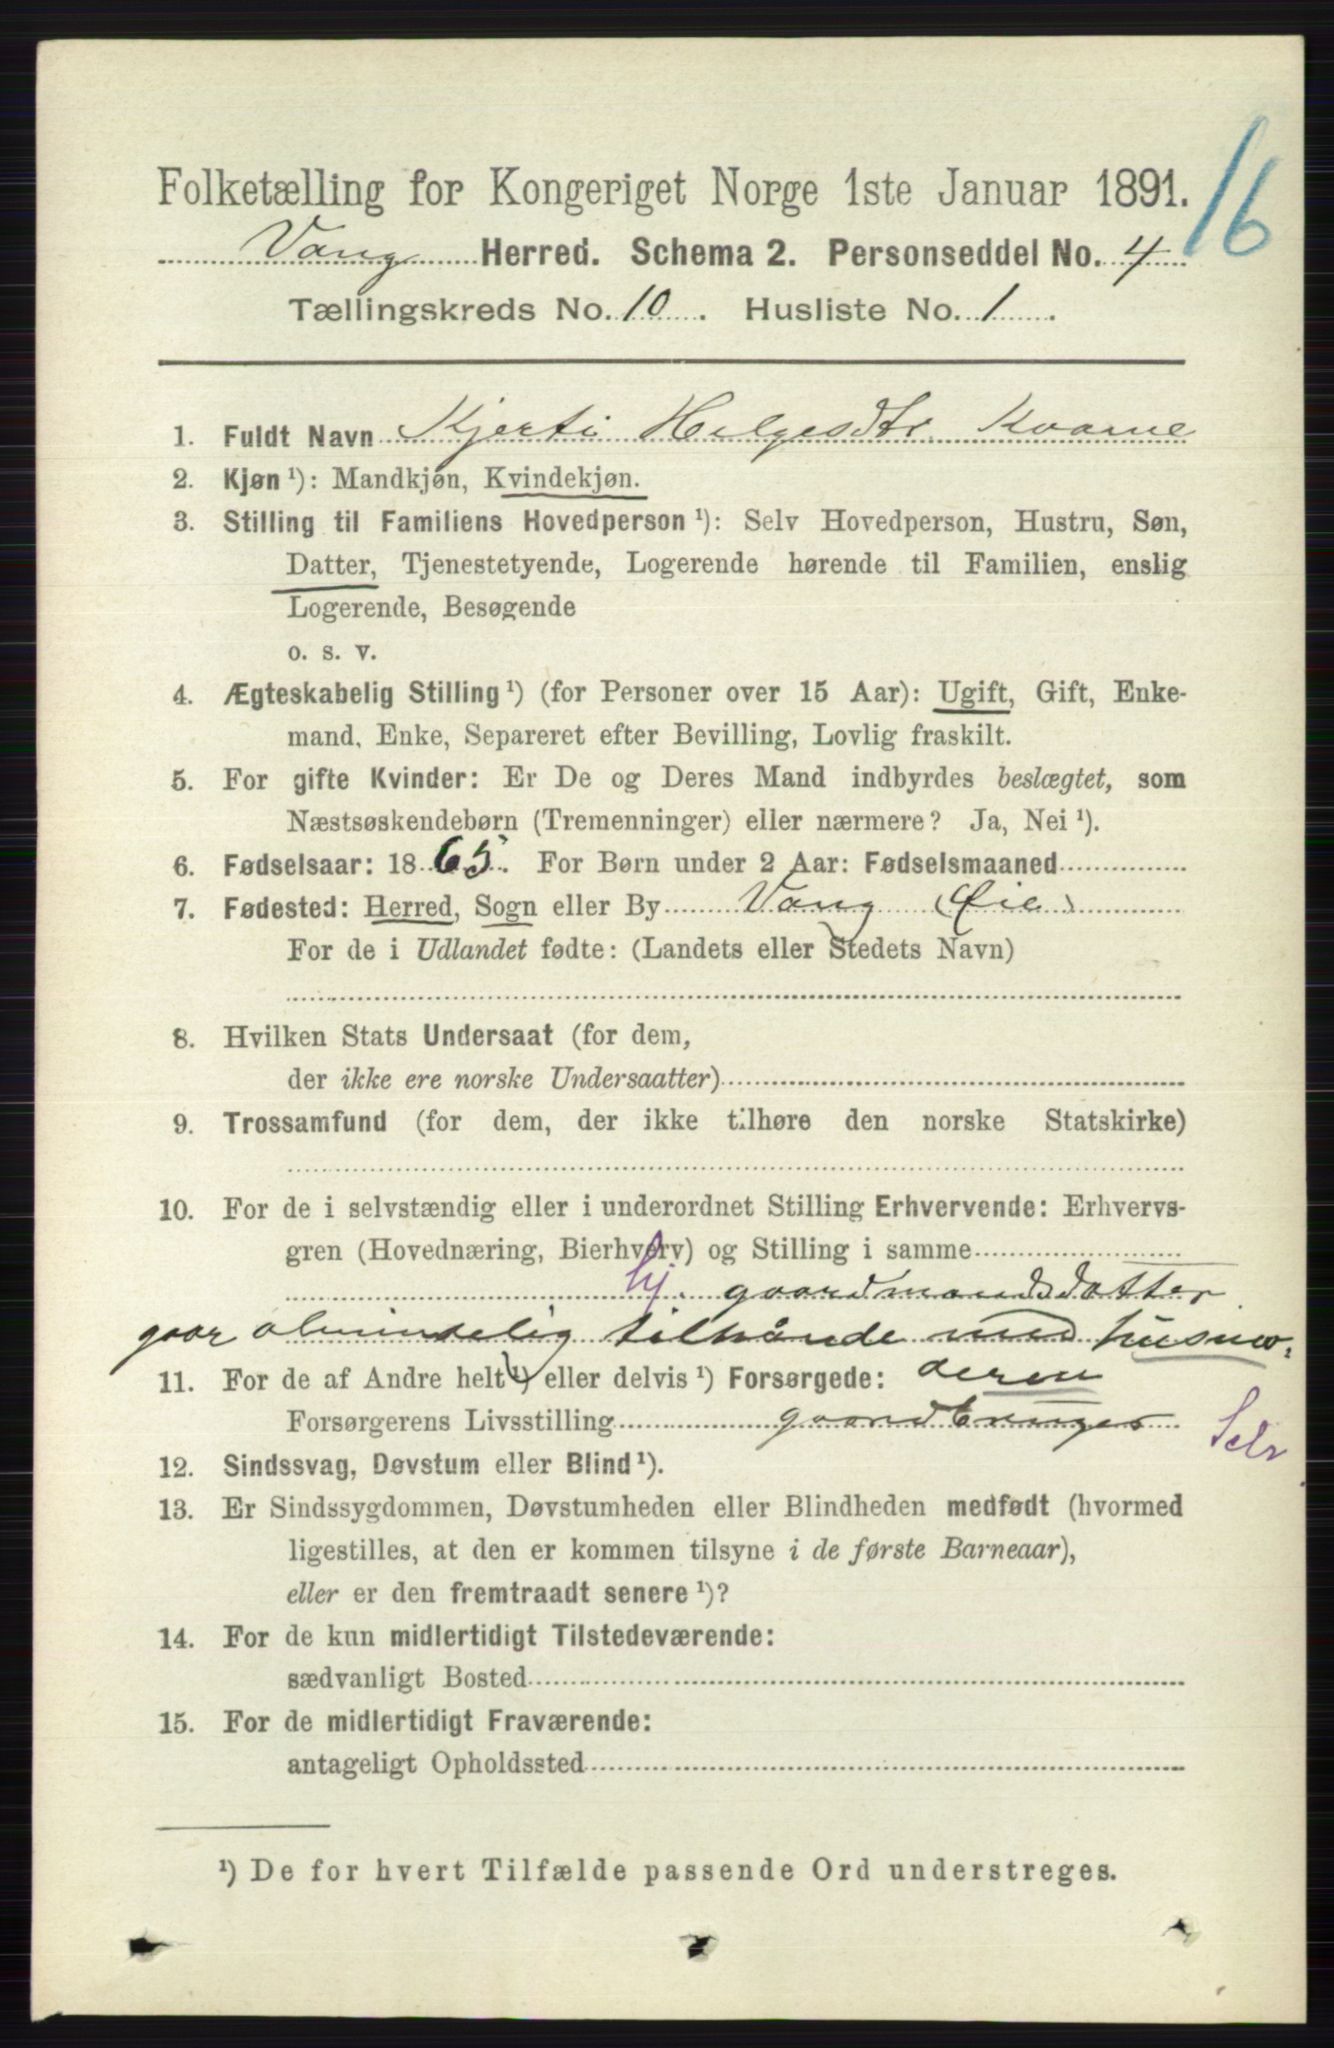 16
Folketælling for Kongeriget Norge 1ste Januar 1891.
Vang Herred. Schema 2. Personseddel No. 4
Tællingskreds No. 10. Husliste No. 1.
1. Fuldt Navn Kjersti Helgesdtr. Kvame
2. Kjøn ¹): Mandkjøn, Kvindekjøn.
3. Stilling til Familiens Hovedperson ¹): Selv Hovedperson, Hustru, Søn,
Datter, Tjenestetyende, Logerende hørende til Familien, enslig
Logerende, Besøgende
o. s. v.
4. Ægteskabelig Stilling ¹) (for Personer over 15 Aar): Ugift, Gift, Enke-
mand, Enke, Separeret efter Bevilling, Lovlig fraskilt.
5. For gifte Kvinder: Er De og Deres Mand indbyrdes beslægtet, som
Næstsøskendebørn (Tremenninger) eller nærmere? Ja, Nei ¹).
6. Fødselsaar: 1865. For Børn under 2 Aar: Fødselsmaaned
7. Fødested: Herred, Sogn eller By Vang (Øie)
For de i Udlandet fødte: (Landets eller Stedets Navn)
8. Hvilken Stats Undersaat (for dem,
der ikke ere norske Undersaatter)
9. Trossamfund (for dem, der ikke tilhøre den norske Statskirke)
10. For de i selvstændig eller i underordnet Stilling Erhvervende: Erhvervs-
gren (Hovednæring, Bierhverv) og Stilling i samme
hj. gaardmandsdatter
gaar almindelig tilhånde med husmo-
11. For de af Andre helt ¹) eller delvis ¹) Forsørgede: deren
Forsørgerens Livsstilling gaardbruger
Selv
12. Sindssvag, Døvstum eller Blind ¹).
13. Er Sindssygdommen, Døvstumheden eller Blindheden medfødt (hvormed
ligestilles, at den er kommen tilsyne i de første Barneaar),
eller er den fremtraadt senere ¹)?
14. For de kun midlertidigt Tilstedeværende:
sædvanligt Bosted
15. For de midlertidigt Fraværende:
antageligt Opholdssted
¹) De for hvert Tilfælde passende Ord understreges.